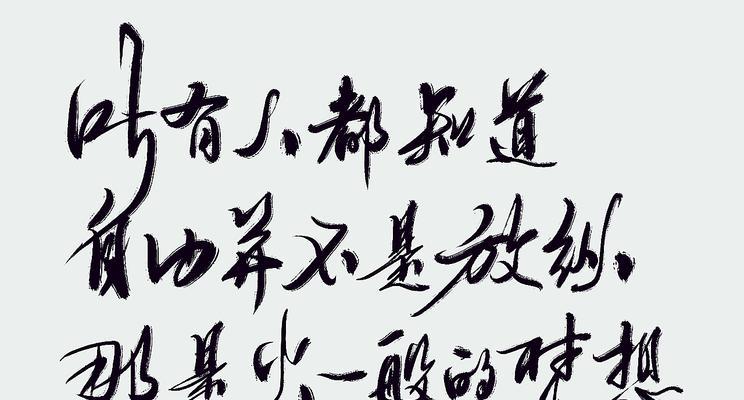 所有人都知道
自由并不是放纵
那是火一般的理想